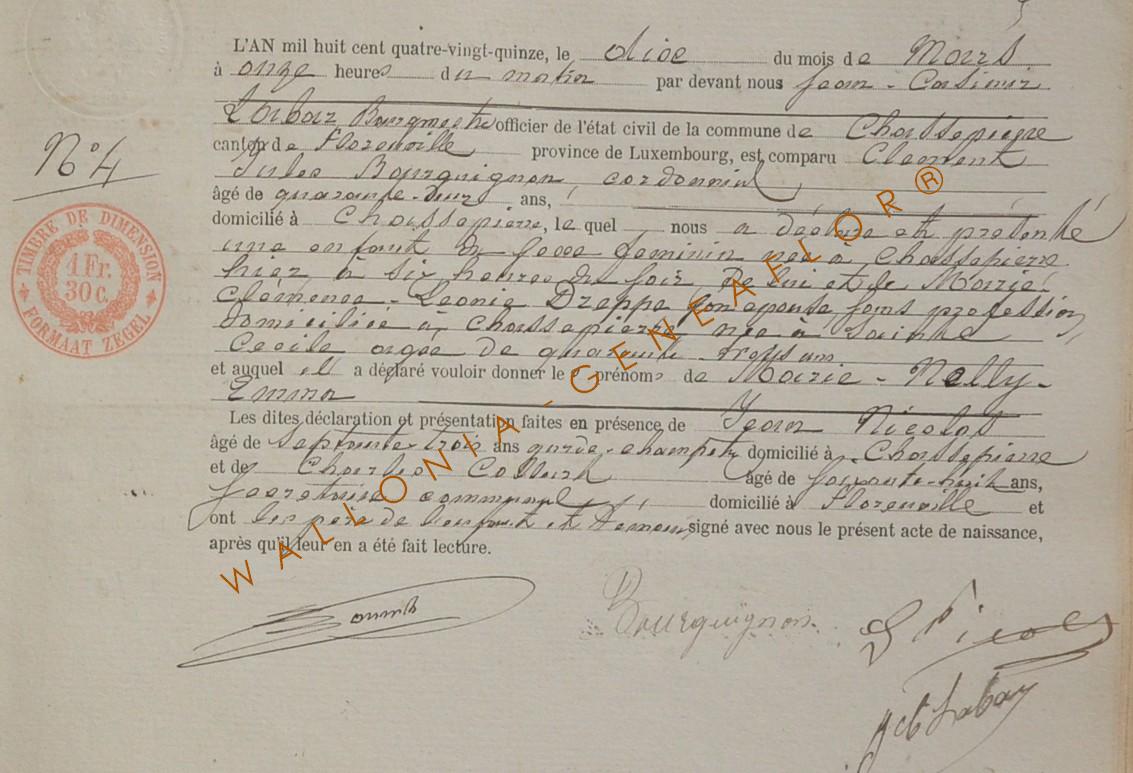 L'AN mil huit cent quatre-vingt-quinze, le dixe du mois de Mars
à onze heures du matin par devant nous Jean-Casimir
Bourgmestre officier de l'état civil de la commune de Chassepierre
N° 4
canton de Florenville province de Luxembourg, est comparu Clément
Jules Bourguignon, cordonnier,
âgé de quarante-deux ans,
domicilié à Chassepierre, le quel nous a déclaré et présenté
une enfant du sexe féminin née à Chassepierre
hier à six heures du soir de lui et de Marie
Clémence-Léonie Dreppe son épouse sans profession
domiciliée à Chassepierre née à Sainte
Cécile agée de quarante-trois ans
et auquel il a déclaré vouloir donner les prénoms de Marie-Nelly-
Emma
Les dites déclaration et présentation faites en présence de Jean Nicolas
âgé de septante-trois ans garde-champêtre domicilié à Chassepierre
et de Charles âgé de soixante-huit ans,
secrétaire communal domicilié à Florenville et
ont les père de l'enfant et témoins signé avec nous le présent acte de naissance,
après qu'il leur en a été fait lecture.
TIMBRE DE DIMENSION
1 Fr.
30 c.
FORMAAT ZEGEL
Bourguignon
WALLONIA-GENEAFLOR®